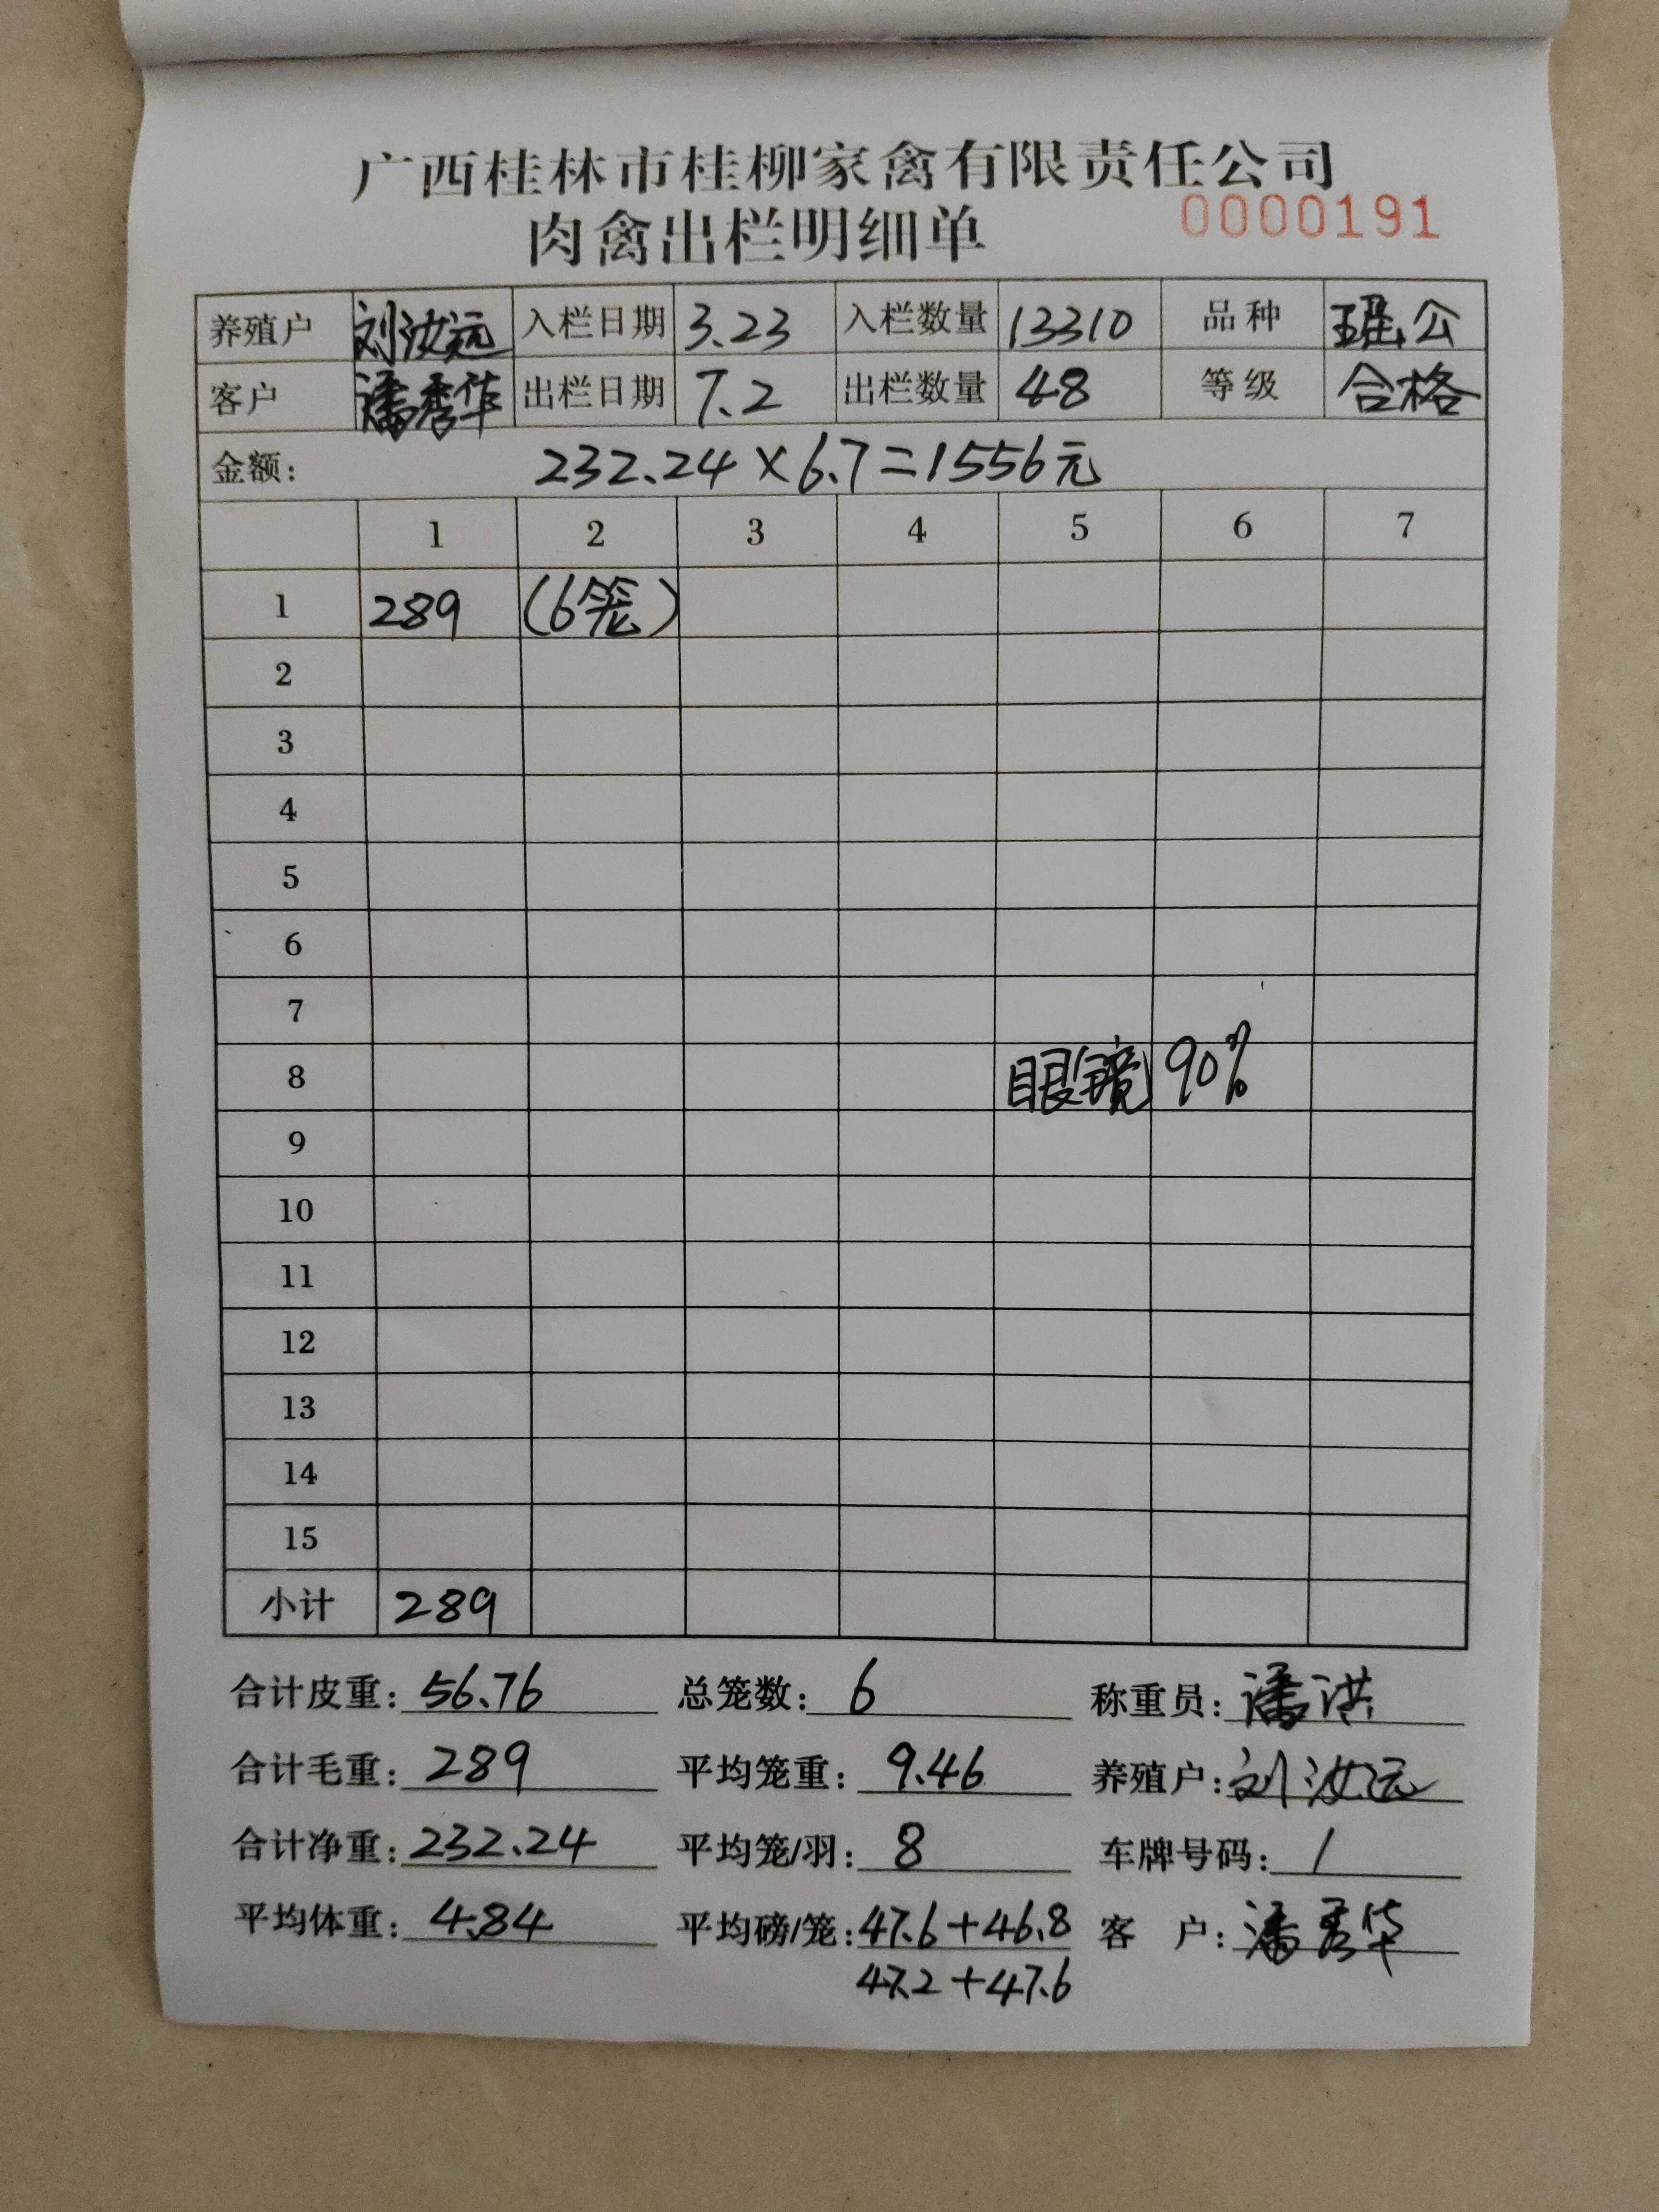 广西桂林市桂柳家禽有限责任公司
肉禽出栏明细单 0000191
养殖户 刘汝远 入栏日期 3.23 入栏数量 13310 品种 瑶公
客户 潘秀华 出栏日期 7.2 出栏数量 48 等级 合格
金额: 232.24×6.7=1556元
1 2 3 4 5 6 7
1 289 (6笼)
2
3
4
5
6
7
8 眼镜 90%
9
10
11
12
13
14
15
小计 289
合计皮重: 56.76 总笼数: 6 称重员: 潘洪
合计毛重: 289 平均笼重: 9.46 养殖户: 刘汝远
合计净重: 232.24 平均笼/羽: 8 车牌号码: /
平均体重: 4.84 平均磅/笼: 47.6+46.8 客 户: 潘秀华
47.2+47.6